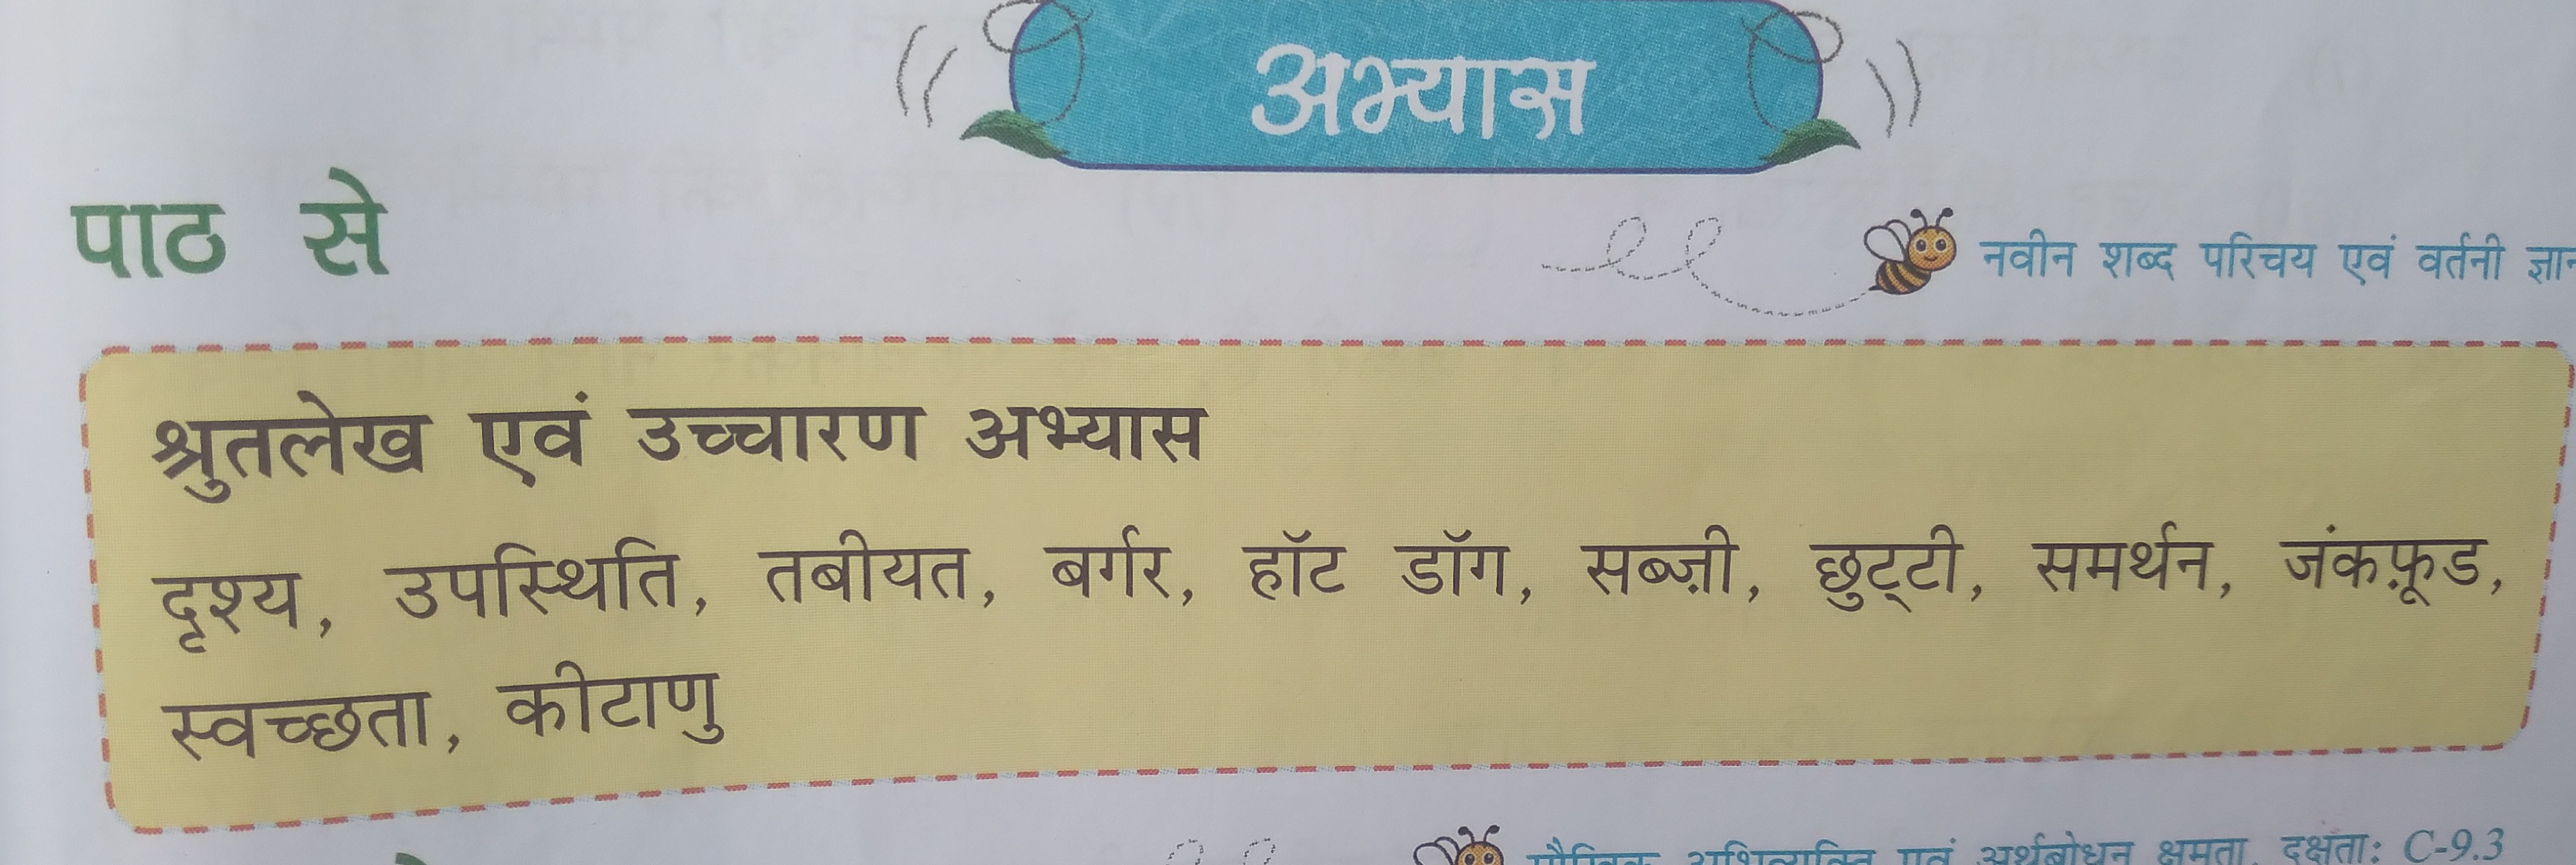 अभ्यास
पाठ से
नवीन शब्द परिचय एवं वर्तनी ज्ञान
श्रुतलेख एवं उच्चारण अभ्यास
दृश्य, उपस्थिति, तबीयत, बर्गर, हॉट डॉग, सब्ज़ी, छुट्टी, समर्थन, जंकफ़ूड,
स्वच्छता, कीटाणु
मौखिक अभिव्यक्ति एवं अर्थबोधन क्षमता, दक्षता: C-9.3